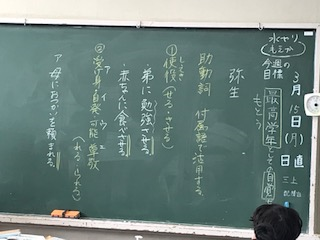 水やり
もえか
今週の
目標
3月15日(月)
日直
三上
最高学年としての自覚を
もとう
弥生
助動詞 付属語で活用する。
①使役(せる・させる)
・弟に勉強させる。
・赤なんに食べさせる。
②受け身・自発・可能・尊敬
アイウエ
(れる・られる)
ア 母におつかいを頼まれる。